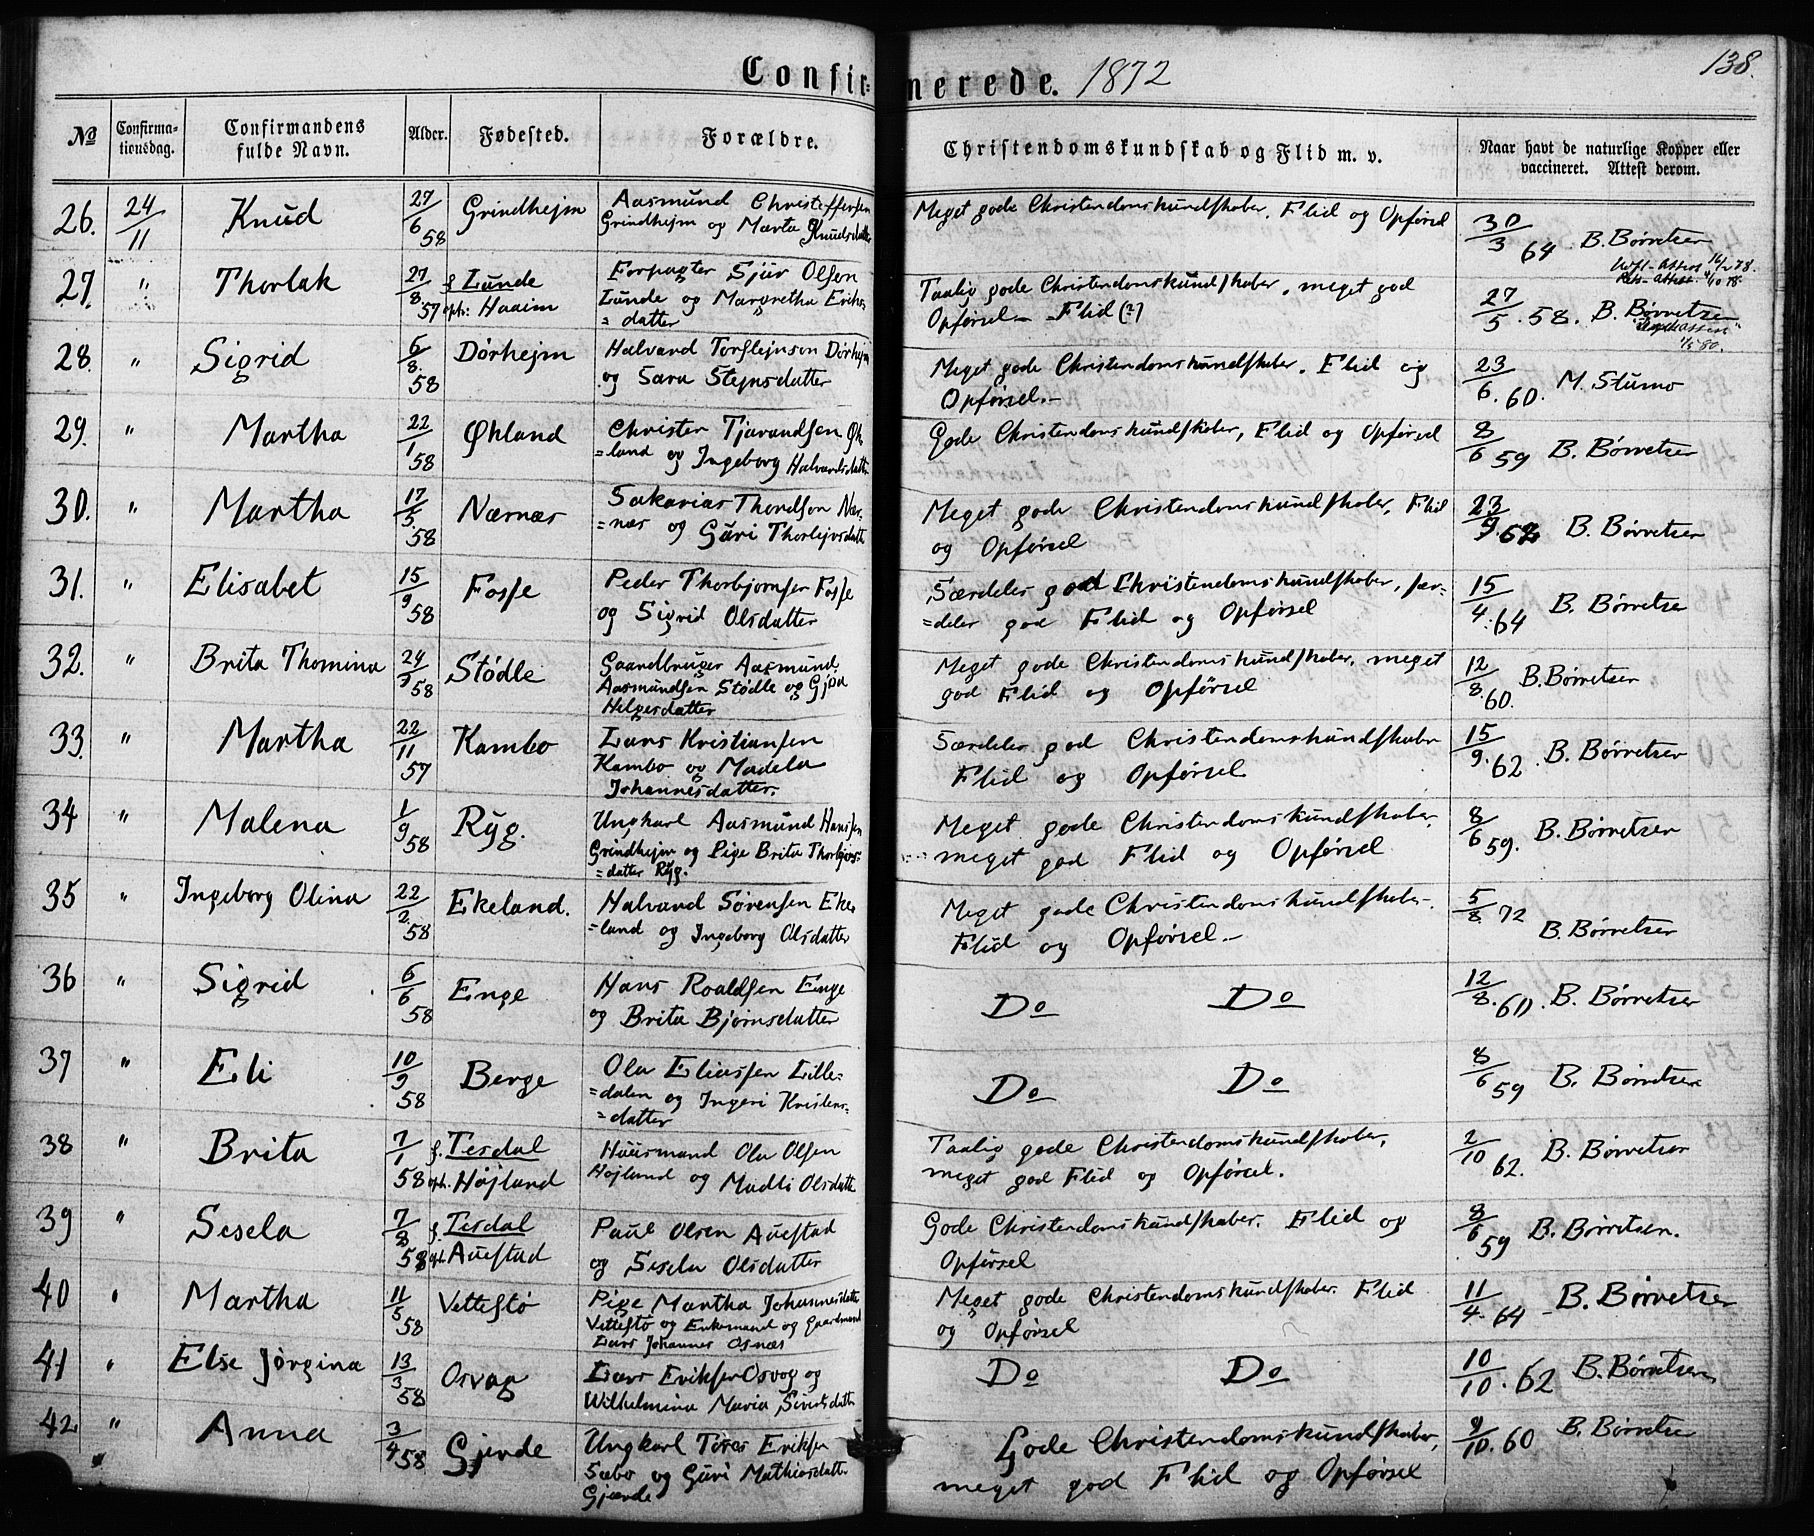 Confir= nerede. 1872
138.
№ Confirma- Confirmandens Alder. Fødested. Forældre. Christendomskundskab og Flid m. v. Naar havt de naturlige Kopper eller
tionsdag. fulde Navn. vaccineret. Attest derom.
26. 24/11 Knud 27/6 58 Grindhejm Aasmund Christoffersen Meget gode Christendomskundskaber, Flid og Opførsel 30/3 64. B. Børretsen
Grindhejm og Marta Knudsdatter
27. " Thorlak 27/8 57 f. Lunde Forpagter Sjur Olsen Taalig gode Christendomskundskaber, meget god 27/5. 58. B. Børretsen
oph: Haaim Lunde og Margretha Eriks Opførsel – Flid (?)
=datter 1/5 80.
28. " Sigrid 6/8. 58 Dørhejm Halvard Torstejnson Dørhejm Meget gode Christendomskundskaber. Flid og 23/6. 60. M. Stumo
og Sara Stejnsdatter Opførsel.–
29. " Martha 22/1 58 Øhland Christen Tjerandsen Øh Gode Christendomskundskaber, Flid og Opførsel 8/6 59 B. Børretsen
=land og Ingeborg Halvardsdatter
30. " Martha 17/5 58 Nærnæs Sakarias Thordsen Nær- Meget gode Christendomskundskaber, Flid 23/9 62 B. Børretsen
=næs og Guri Thorlejvsdatter og Opførsel
31. " Elisabet 15/9 58 Fosse Peder Thorbjørnsen Fosse Særdeles god Christendomskundskaber, sær- 15/4. 64 B. Børretsen
og Sigrid Olsdatter =deles god Flid og Opførsel
32. " Brita Thomina 24/3 58 Stødle Gaardbruger Aasmund Meget gode Christendomskundskaber, meget 12/8. 60. B. Børretsen
Aasmundsen Stødle og Gjoa god Flid og Opførsel
Helgesdatter
33. " Martha 22/11 57 Kambo Lars Kristiansen Særdeles god Christendomskundskaber 15/9. 62. B. Børretsen
Kambo og Madela Flid og Opførsel
Johannesdatter.
34 " Malena 1/9 58 Ryg. Ungkarl Aasmund Hansen Meget gode Christendomskundskaber, 8/6 59. B. Børretsen
Grindhejm og Pige Brita Thorbjørns- meget god Flid og Opførsel
=datter Ryg.
35 " Ingeborg Olina 22/2 58 Ekeland. Halvard Sørensen Eke Meget gode Christendomskundskaber, 5/8 72 B. Børretsen
=land og Ingeborg Olsdatter Flid og Opførsel.–
36 " Sigrid 6/6 58 Enge Hans Roaldsen Enge Do Do 12/8. 60. B. Børretsen
og Brita Bjørnsdatter
37 " Eli 10/9 58 Berge Ola Eliassen Lille- Do Do 8/6 59 B. Børretsen
=dalen og Ingeri Kristens-
=datter
38 " Brita 7/1 58 f. Tesdal Huusmand Ola Olsen Taalig gode Christendomskundskaber, 2/10 62. B. Børretsen
oph. Højland Højland og Madli Olsdatter meget god Flid og Opførsel.
39 " Sesela 7/8 58 f. Tesdal Paul Olsen Auestad Gode Christendomskundskaber. Flid og 8/6 59 B. Børretsen.
oph. Auestad og Sesela Olsdatter Opførsel
40 " Martha 11/5 58 Vettestø Pige Martha Johannesdatter Meget gode Christendomskundskaber. Flid 11/4. 64 B. Børretsen
Vettestø og Enkemand og Gaardmand og Opførsel
Lars Johannes Osnæs
41 " Else Jørgina 13/3 58 Osvag Lars Eriksen Osvog og Do Do 10/10. 62 B. Børretsen
Wilhelmina Maria Sivertsdatter
42. " Anna 3/4 58 Gjerde Ungkarl Tøres Eriksen Gode Christendomskundskaber, 9/10. 60 B. Børretsen
Sæbo og Guri Mathiasdatter meget god Flid og Opførsel
Gjærde